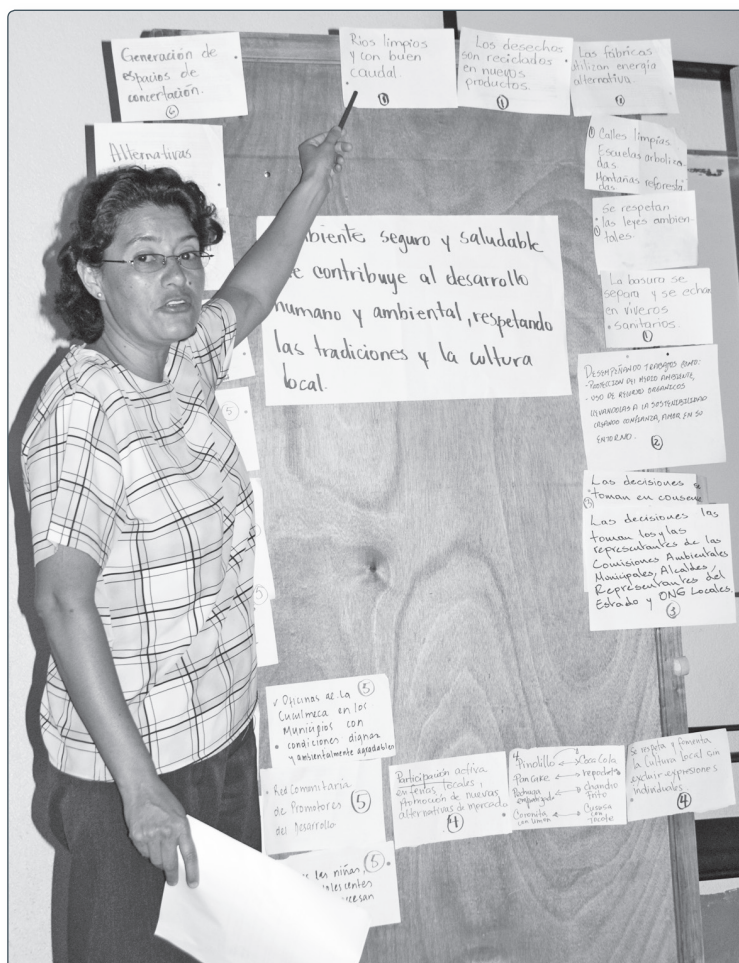 Generación de
espacios de
concertación.
6
Rios limpios
y con buen
caudal.
1
Los desechos
son reciclados
en nuevos
productos.
1
Las fábricas
utilizan energía
alternativa.
1
Alternativas
1 Calles limpias.
Escuelas arboliza
das
Montañas reforesta
das
Se respetan
las leyes ambien-
tales.
La basura se
separa y se echa
en viveros
sanitarios.
1
biente seguro y saludable
e contribuye al desarrollo
humano y ambiental, respetando
las tradiciones y la cultura
local.
DESEMPEÑANDO TRABAJOS COMO:
- PROTECCION DEL MEDIO AMBIENTE,
- USO DE ORGANICOS
A LA SOSTENIBILIDAD
CREANDO CONFIANZA, AMOR EN SU
ENTORNO.
2
5
Las decisiones se
toman en consen
3
Las decisiones las
toman los y las
representantes de las
Comisiones Ambientales
Municipales, Alcaldes,
Representantes del
Estado y ONG Locales.
3
5
✓ Oficinas de La 5
Cuculmeca en los
Municipios con
condiciones dignas
y ambientalmente agradables
Red Comunitaria
de Promotores 5
del Desarrollo
las niñas, 5
olescentes
cesan
Participación activa
en ferias locales,
Promoción de nuevas
alternativas de mercado
4
Pinolillo ↔ Coca Cola
Frito
Cususa
con
Se respeta y fomenta
la Cultura local sin
excluir expresiones
individuales.
4